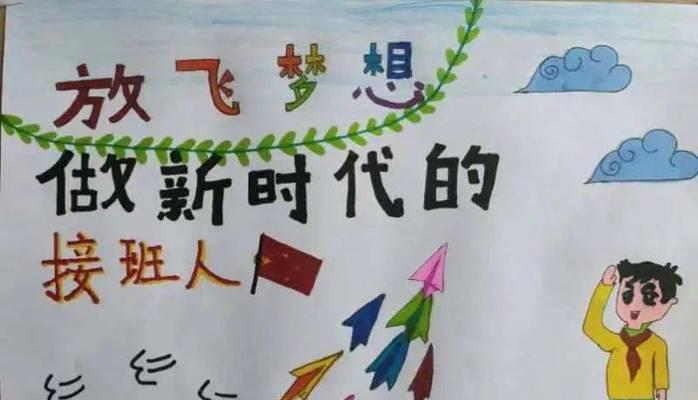 放飞梦想
做新时代的
接班人